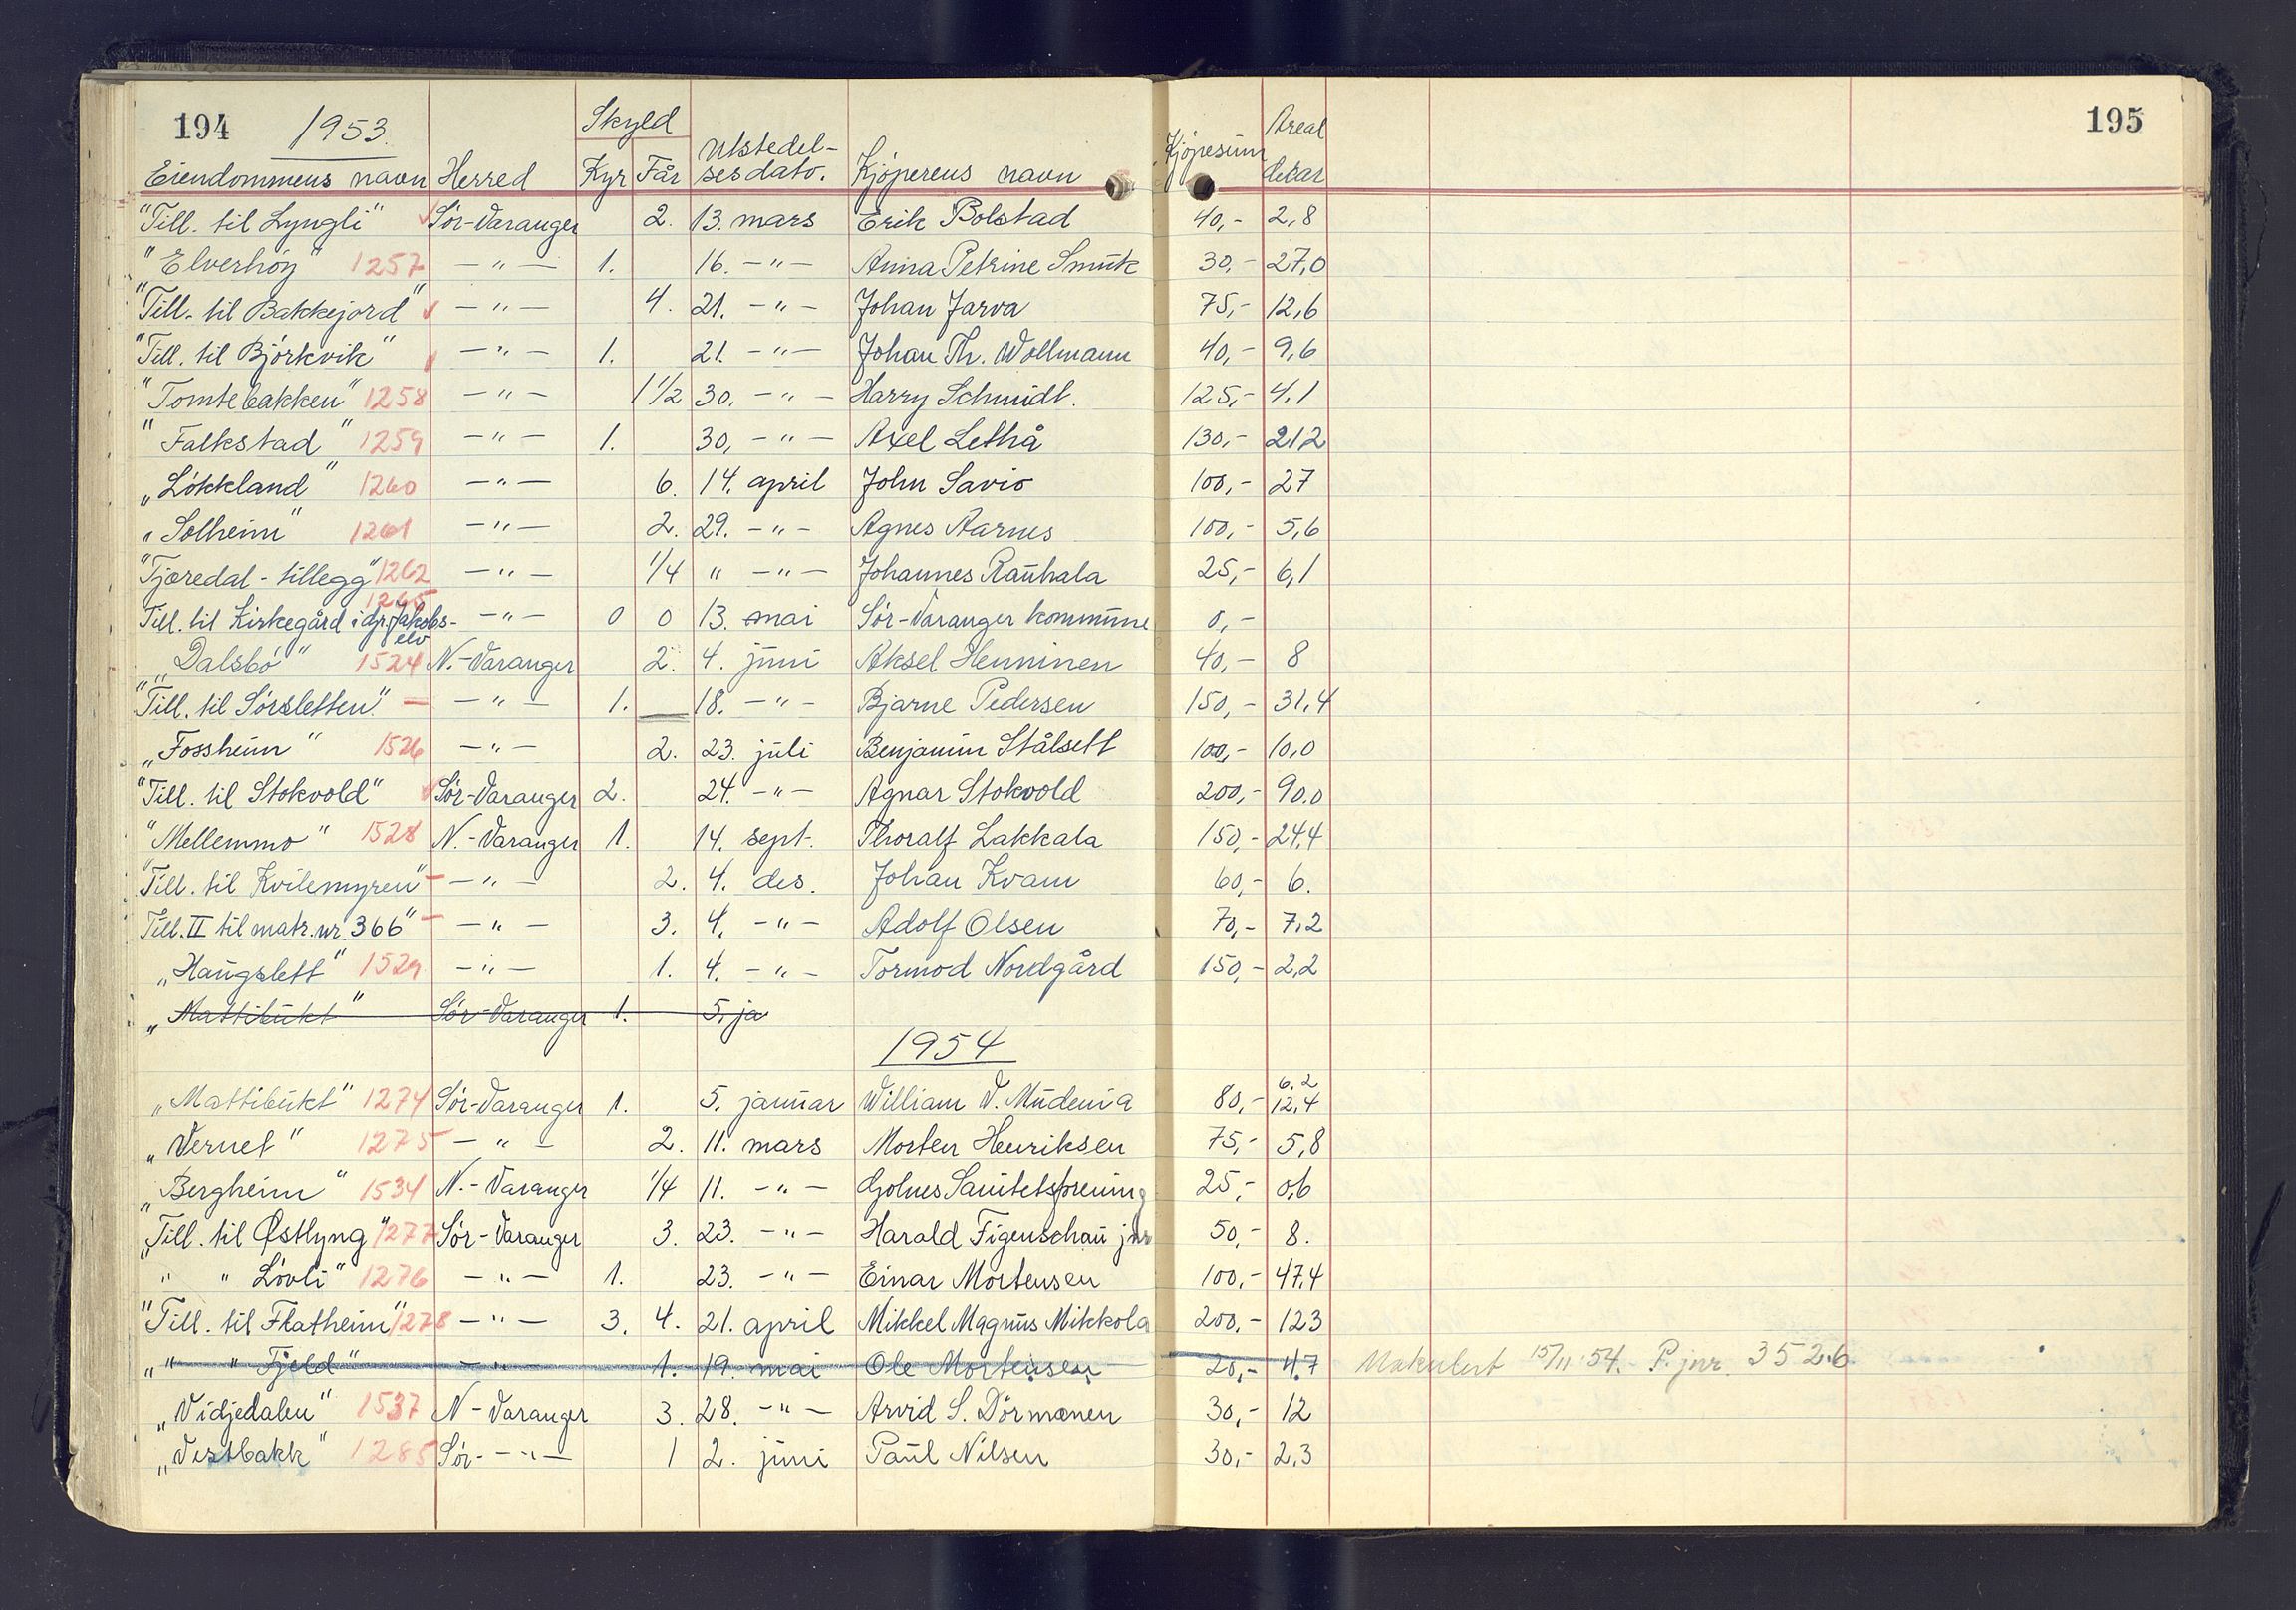 194 1953. Skyld Areal 195
Eiendommens navn Herred Kyr Får Utstedelsesdato. Kjöperens navn Kjöpesum dekar
"Till. til Lyngli" Sör-Varanger 2. 13. mars Erik Bolstad 40,- 2,8
"Elverhöy" 1257 — " — 1. 16. — " — Anna Petrine Smuk 30,- 27,0
"Till. til Bakkejord" — " — 4. 21. — " — Johan Jarva 75,- 12,6
"Till. til Björkvik" — " — 1. 21. — " — Johan Th. Wollmann 40,- 9,6
"Tomtebakken" 1258 — " — 1 1/2 30. — " — Harry Schmidt. 125,- 4.1
"Falkstad" 1259 — " — 1. 30. — " — Axel Lethå 130,- 212
"Lökkland" 1260 — " — 6. 14. april John Savio 100,- 27
"Solheim" 1261 — " — 2. 29. — " — Agnes Aarnes 100,- 5,6
"Tjæredal - tillegg" 1262 — " — 1/4 " — " — Johannes Rauhala 25,- 6,1
1265
Till. til Kirkegård i Gr. Jakobselv — " — 0 0 13. mai Sör-Varanger kommune 0,-
"Dalsbö" 1524 N.-Varanger 2. 4. juni Aksel Henninen 40,- 8
"Till. til Sörsletten" — " — 1. 18. — " — Bjarne Pedersen 150,- 31,4
"Fossheim" 1526 — " — 2. 23. juli Benjamin Stålsett 100,- 10,0
"Till. til Stokvold" Sör-Varanger 2. 24. — " — Agnar Stokvold 200,- 90.0
"Mellemmo" 1528 N.-Varanger 1. 14. sept. Thoralf Lakkala 150,- 24,4
"Till. til Kvilemyren" — " — 2. 4. des. Johan Kvam 60,- 6.
Till. II til matr. nr. 366" — " — 3. 4. — " — Adolf Olsen 70,- 7,2
"Haugslett" 1529 — " — 1. 4. — " — Tormod Nordgård 150,- 2,2
"Mattibukt" Sör-Varanger 1. 5. ja
1954
"Mattibukt" 1274 Sör-Varanger 1. 5. januar William V. Mudenia 80,- 6.2 12,4
"Vernet" 1275 — " — 2. 11. mars Morten Henriksen 75,- 5,8
"Bergheim" 1534 N.-Varanger 1/4 11. — " — Golnes Sanitetsforening 25,- 0,6
"Till. til Østlyng" 1277 Sör-Varanger 3. 23. — " — Harald Figenschau jnr 50,- 8.
" " Lövli" 1276 — " — 1. 23. — " — Einar Mortensen 100,- 47,4
"Till. til Flatheim" 1278 — " — 3. 4. 21. april Mikkel Magnus Mikkola 200,- 123
" " Fjeld" — " — 1. 19. mai Ole Mortensen 20,- 4.7 Makulert 15/11-54. P. jnr. 3526
"Vidjedalen" 1537 N-Varanger 3. 28. — " — Arvid S. Dörmænen 30,- 12
"Vestbakk" 1285 Sör- — " — 1 2. juni Paul Nilsen 30,- 2,3